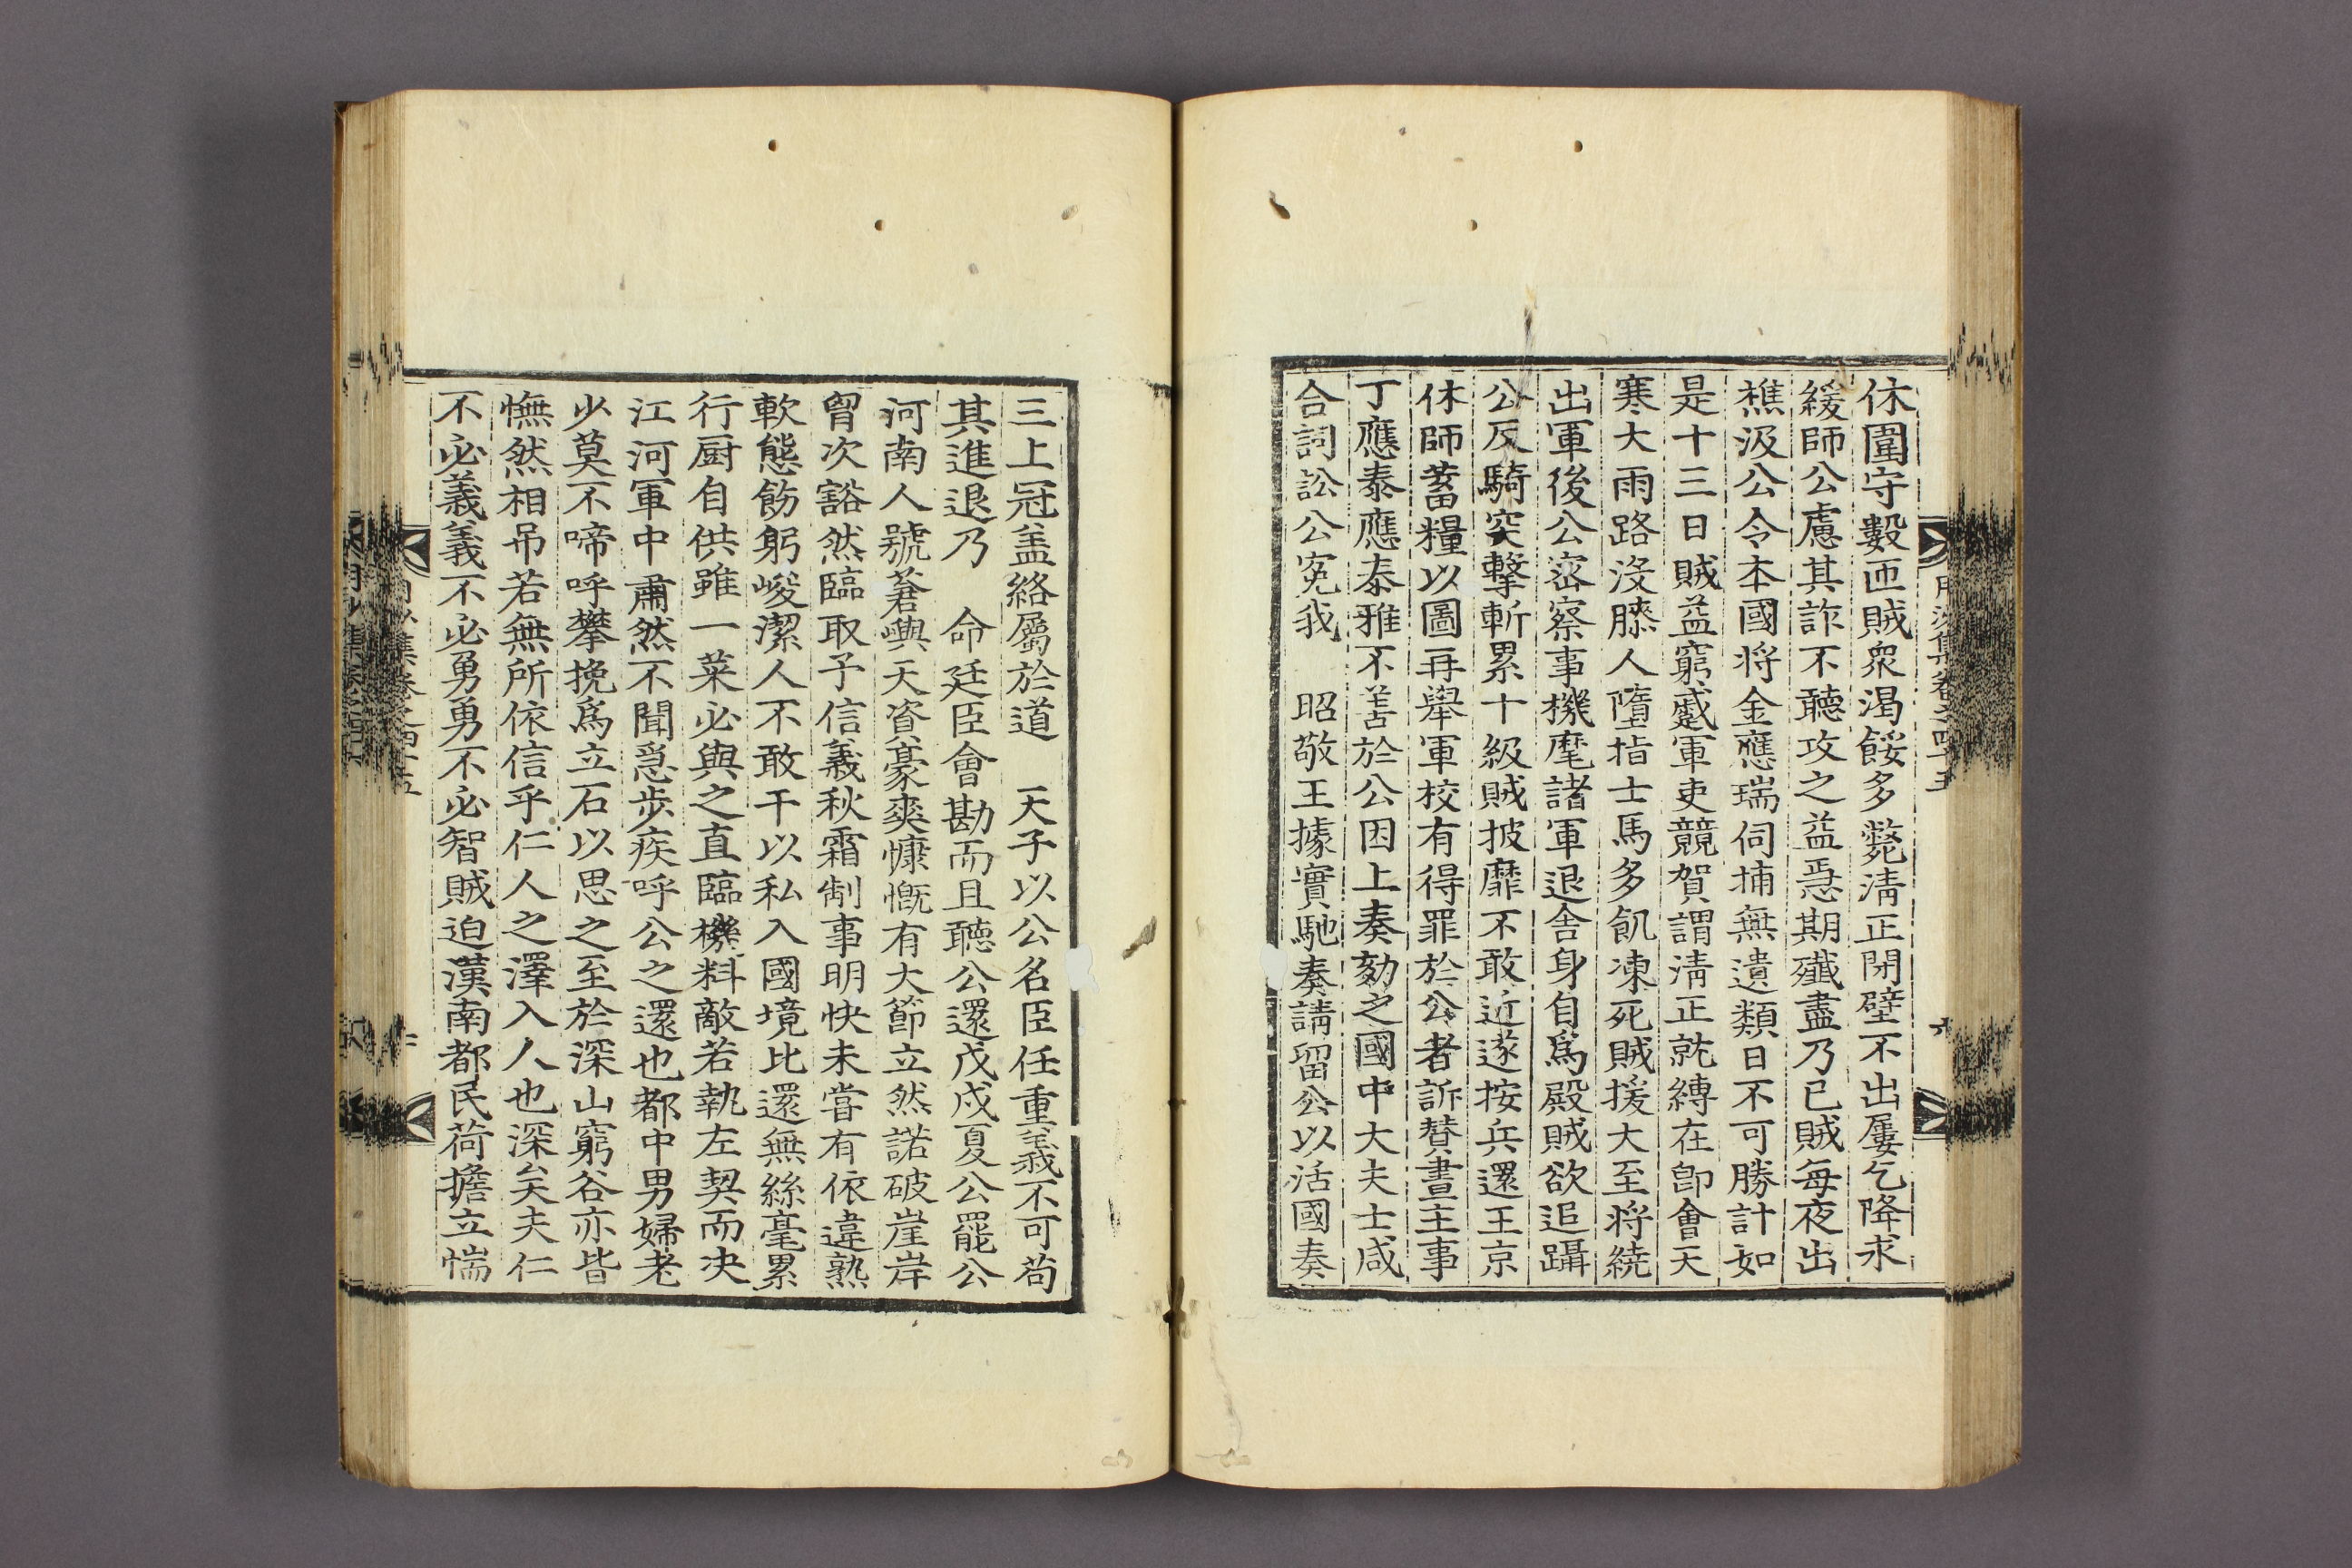 休圍守數匝賊衆渴餒多斃淸正閉壁不出屢乞降求
緩師公慮其詐不聽攻之益急期殲盡乃已賊每夜出
樵汲公令本國將金應瑞伺捕無遺類日不可勝計如
是十三日賊益窮蹙軍吏競賀謂淸正就縛在卽會天
寒大雨路沒膝人墮指士馬多飢凍死賊援大至將繞
出軍後公密察事機麾諸軍退舍身自爲殿賊欲追躡
公反騎突擊斬累十級賊披靡不敢近遂按兵還王京
休師蓄糧以圖再舉軍校有得罪於公者訴贊畫主事
丁應泰應泰雅不善於公因上奏劾之國中大夫士咸
合詞訟公寃我　昭敬王據實馳奏請留公以活國奏
三上冠盖絡屬於道　天子以公名臣任重義不可苟
其進退乃　命廷臣會勘而且聽公還戊戌夏公罷公
河南人號蒼嶼天資豪爽慷慨有大節立然諾破崖岸
胷次豁然臨取予信義秋霜制事明快未嘗有依違熟
軟態飭躬峻潔人不敢干以私入國境比還無絲毫累
行厨自供雖一菜必與之直臨機料敵若執左契而決
江河軍中肅然不聞急步疾呼公之還也都中男婦老
少莫不啼呼攀挽爲立石以思之至於深山窮谷亦皆
憮然相吊若無所依信乎仁人之澤入人也深矣夫仁
不必義義不必勇勇不必智賊迫漢南都民荷擔立惴